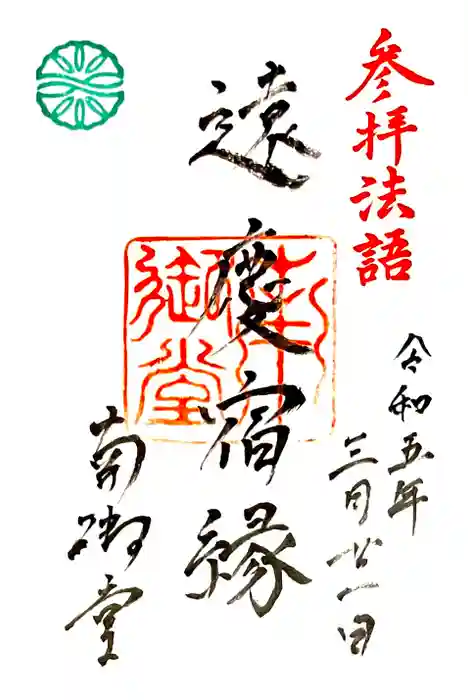 参拝法語
令和五年
三月廿一日
遠慶宿縁
南御堂
南御堂